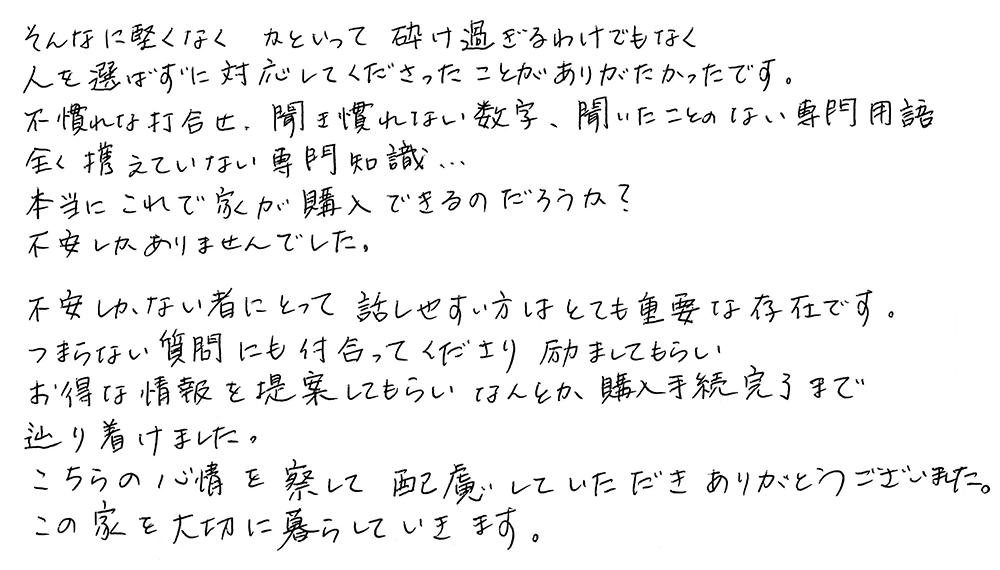 そんなに堅くなく かといって 砕け過ぎるわけでもなく
人を選ばずに対応してくださったことがありがたかったです。
不慣れな打合せ、聞き慣れない数字、聞いたことのない専門用語
全く携えていない専門知識…
本当にこれで家が購入できるのだろうか？
不安しかありませんでした。
不安しかない者にとって 話しやすい方はとても重要な存在です。
つまらない質問にも付合ってくださり 励ましてもらい
お得な情報を提案してもらい なんとか、購入手続完了まで
辿り着けました。
こちらの心情を察して 配慮していただきありがとうございました。
この家を大切に暮らしていきます。